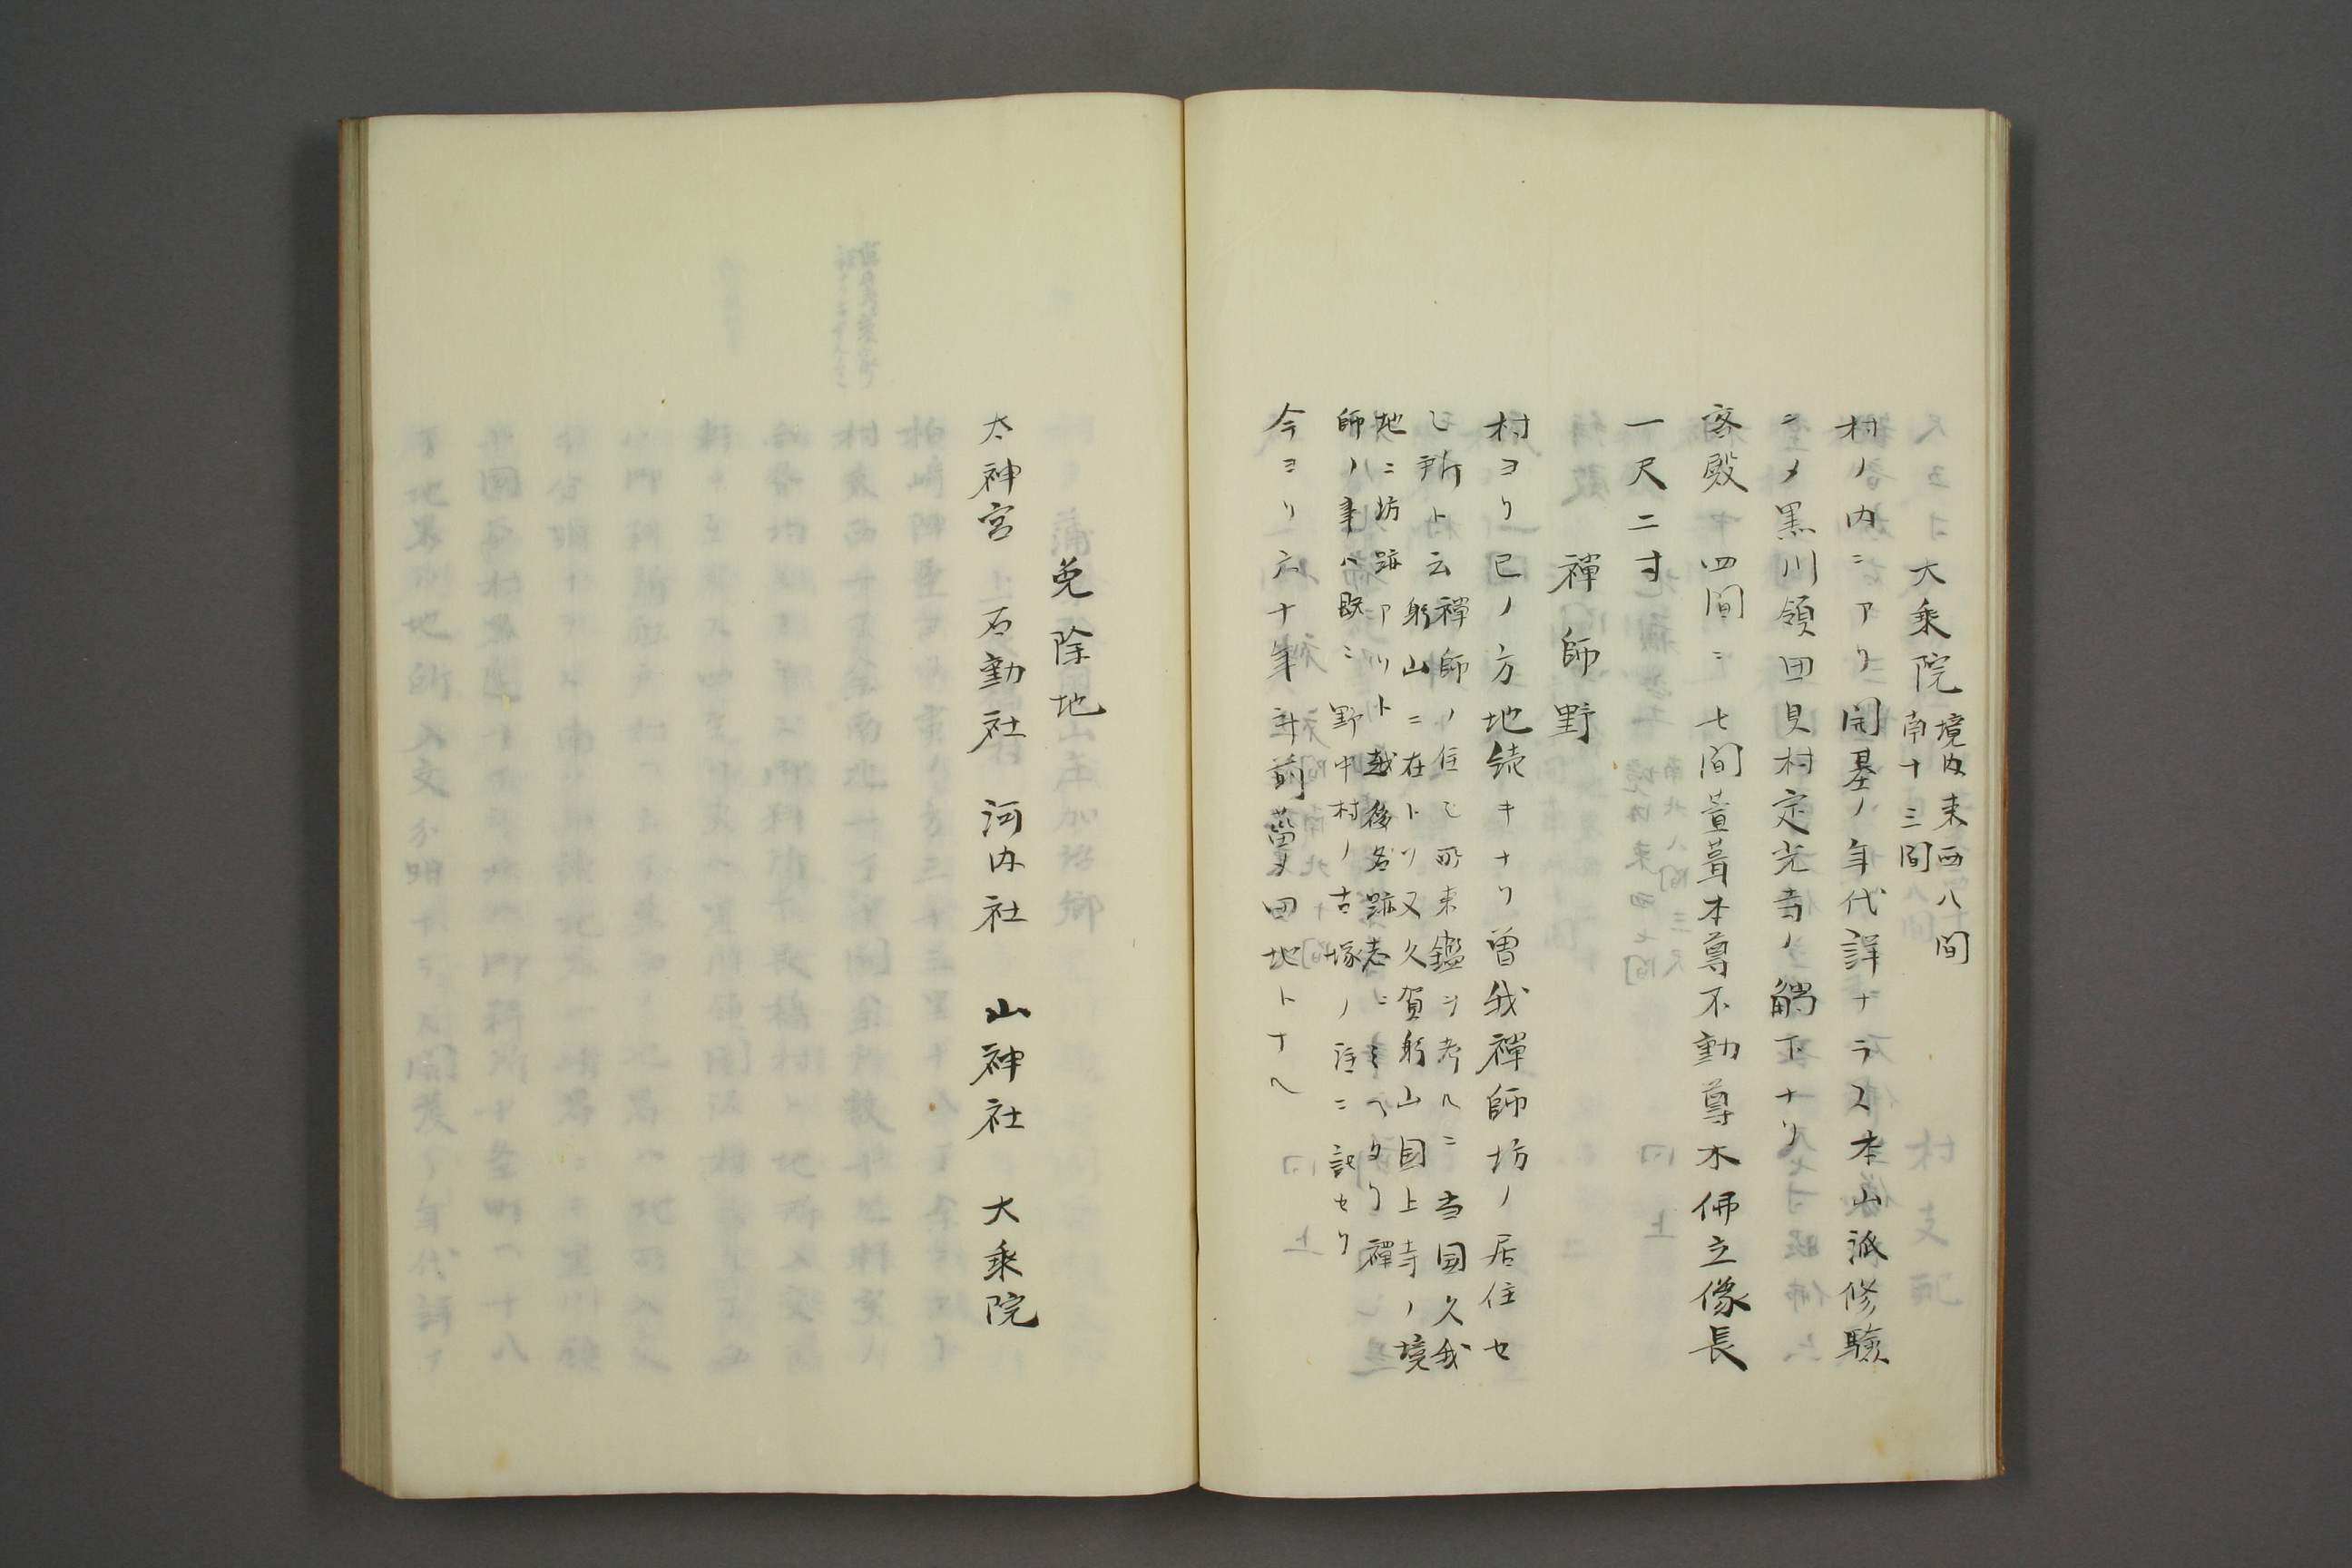 大乘院
境内東西八間
南十三間
村ノ内ニアリ開基ノ年代詳ナラス本山派修驗
ニ〆黒川領田貝村定光寺ノ觸下ナリ
客殿四間ニ七間萱葺本尊不動尊木佛立像長
一尺二寸
禪師野
村ヨリ巳ノ方地続キナリ曽我禪師坊ノ居住セ
シ所ト云禪師ノ住シ所東鑑ヲ考ルニ当国久我
躬山ニ在トリ又久賀躬山国上寺ノ境
地ニ坊跡アリト越後名跡志ニミヘタリ禪
師ノ事ハ既ニ野中村ノ古塚ノ注ニ記セリ
今ヨリ六十年計前葘〆田地トナル
免除地
太神宮 石動社 河内社 山神社 大乘院